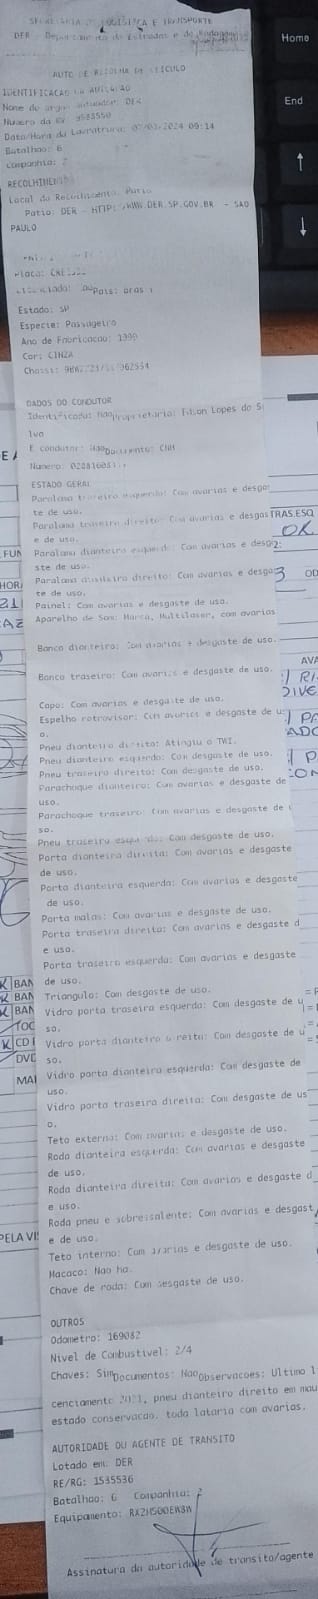 SECRETARIA DE LOGISTICA E TRANSPORTE
DER - Departamento de Estradas e de Rodagem
AUTO DE RECOLHA DE VEICULO
IDENTIFICACAO DA AUTUACAO
Nome do orgao autuador: DER
Numero da
Data/Hora da Lavratura: 2024 09:14
Batalhao: 6
Companhia: 2
RECOLHIMENTO
Local do Recolhimento: Patio
Patio: DER - HTTP://WWW.DER.SP.GOV.BR - SAO
PAULO
Placa:
Pais:
Estado: SP
Especie: Passageiro
Ano de Fabricacao: 1999
Cor: CINZA
Chassi:
DADOS DO CONDUTOR
Identificado: Nao Proprietario: Edson Lopes da Si
lva
E condutor: Nao Documento: CNH
Numero:
ESTADO GERAL
Paralama traseiro esquerdo: Com avarias e desgas
te de uso.
Paralama traseiro direito: Com avarias e desgast
e de uso.
Paralama dianteiro esquerdo: Com avarias e desga
ste de uso.
Paralama dianteiro direito: Com avarias e desgas
te de uso.
Painel: Com avarias e desgaste de uso.
Aparelho de Som: Marca, Multilaser, com avarias
Banco dianteiro: Com avarias e desgaste de uso.
Banco traseiro: Com avarias e desgaste de uso.
Capo: Com avarias e desgaste de uso.
Espelho retrovisor: Com avarias e desgaste de us
o.
Pneu dianteiro direito: Atingiu o TWI.
Pneu dianteiro esquerdo: Com desgaste de uso.
Pneu traseiro direito: Com desgaste de uso.
Parachoque dianteiro: Com avarias e desgaste de
uso.
Parachoque traseiro: Com avarias e desgaste de u
so.
Pneu traseiro esquerdo: Com desgaste de uso.
Porta dianteira direita: Com avarias e desgaste
de uso.
Porta dianteira esquerda: Com avarias e desgaste
de uso.
Porta malas: Com avarias e desgaste de uso.
Porta traseira direita: Com avarias e desgaste d
e uso.
Porta traseira esquerda: Com avarias e desgaste
de uso.
Triangulo: Com desgaste de uso.
Vidro porta traseira esquerda: Com desgaste de u
so.
Vidro porta dianteira direita: Com desgaste de u
so.
Vidro porta dianteira esquerda: Com desgaste de
uso.
Vidro porta traseira direita: Com desgaste de us
o.
Teto externo: Com avarias e desgaste de uso.
Roda dianteira esquerda: Com avarias e desgaste
de uso.
Roda dianteira direita: Com avarias e desgaste d
e uso.
Roda pneu e sobressalente: Com avarias e desgast
e de uso.
Teto interno: Com avarias e desgaste de uso.
Macaco: Nao ha.
Chave de roda: Com desgaste de uso.
OUTROS
Odometro: 169082
Nivel de Combustivel: 2/4
Chaves: Sim Documentos: Nao Observacoes: Ultimo li
cenciamento 2021, pneu dianteiro direito em mau
estado conservacao, toda lataria com avarias.
AUTORIDADE OU AGENTE DE TRANSITO
Lotado em: DER
RE/RG: 1535536
Batalhao: 6 Companhia: 2
Equipamento:
Assinatura da autoridade de transito/agente
Home
End
TRAS.ESQ
OK
BAN
BAN
BAN
TOC
CD
DVD
PELA VI